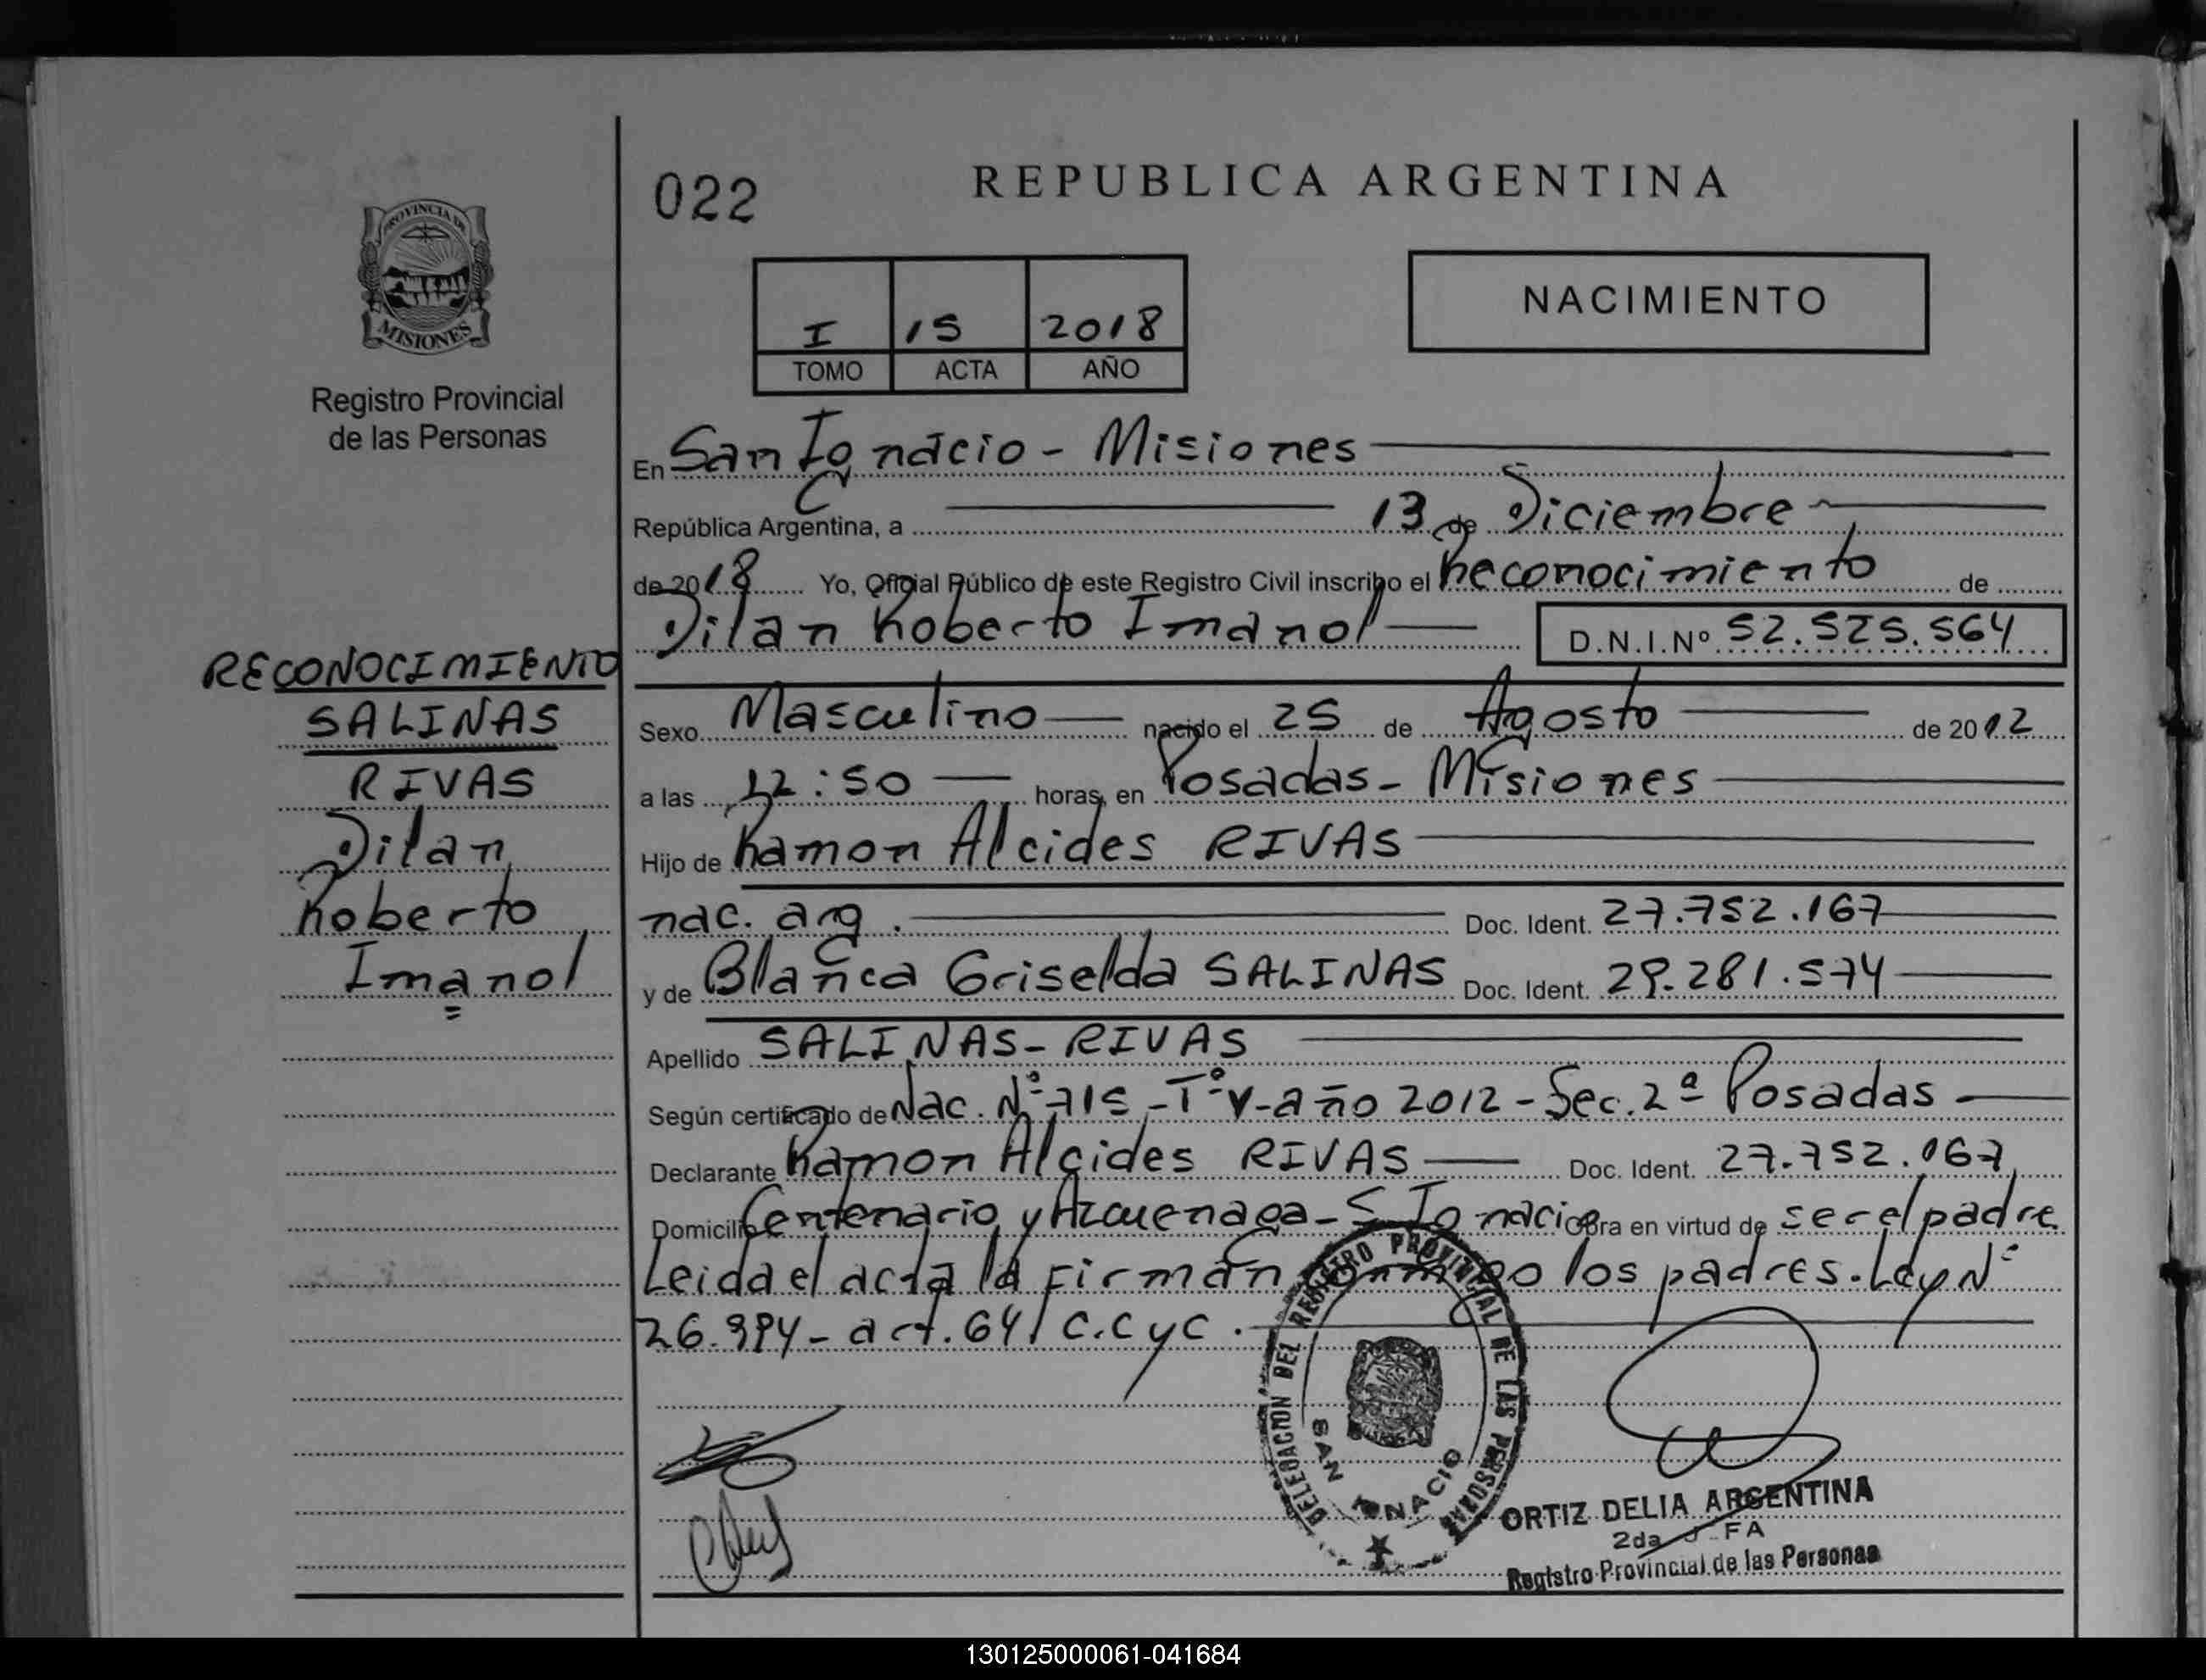 022
REPUBLICA ARGENTINA
PROVINCIA DE
MISIONES
Registro Provincial
de las Personas
I 15 2018
TOMO ACTA AÑO
NACIMIENTO
En San Ignacio - Misiones
República Argentina, a 13 de Diciembre
de 2018 Yo, Oficial Público de este Registro Civil inscribo el Reconocimiento de
Dilan Roberto Imanol D.N.I.Nº 52.525.564
RECONOCIMIENTO
SALINAS
RIVAS
Dilan
Roberto
Imanol
Sexo Masculino nacido el 25 de Agosto de 2012
a las 12:50 horas, en Posadas - Misiones
Hijo de Ramon Alcides RIVAS
nac. arg. Doc. Ident. 27.752.167
y de Blanca Griselda SALINAS Doc. Ident. 29.281.574
Apellido SALINAS - RIVAS
Según certificado de Nac. Nº 715 - Tº V - año 2012 - Sec. 2ª Posadas
Declarante Ramon Alcides RIVAS Doc. Ident. 27.752.167
Domicilio Centenario y Azcuenaga - S. Ignacio Obra en virtud de ser el padre
Leida el acta la Firman conmigo los padres. Ley Nº
26.994 - art. 641 C.C y C.
DELEGACION DEL REGISTRO PROVINCIAL DE LAS PERSONAS
SAN IGNACIO
ORTIZ DELIA ARGENTINA
2da J FA
Registro Provincial de las Personas
130125000061-041684